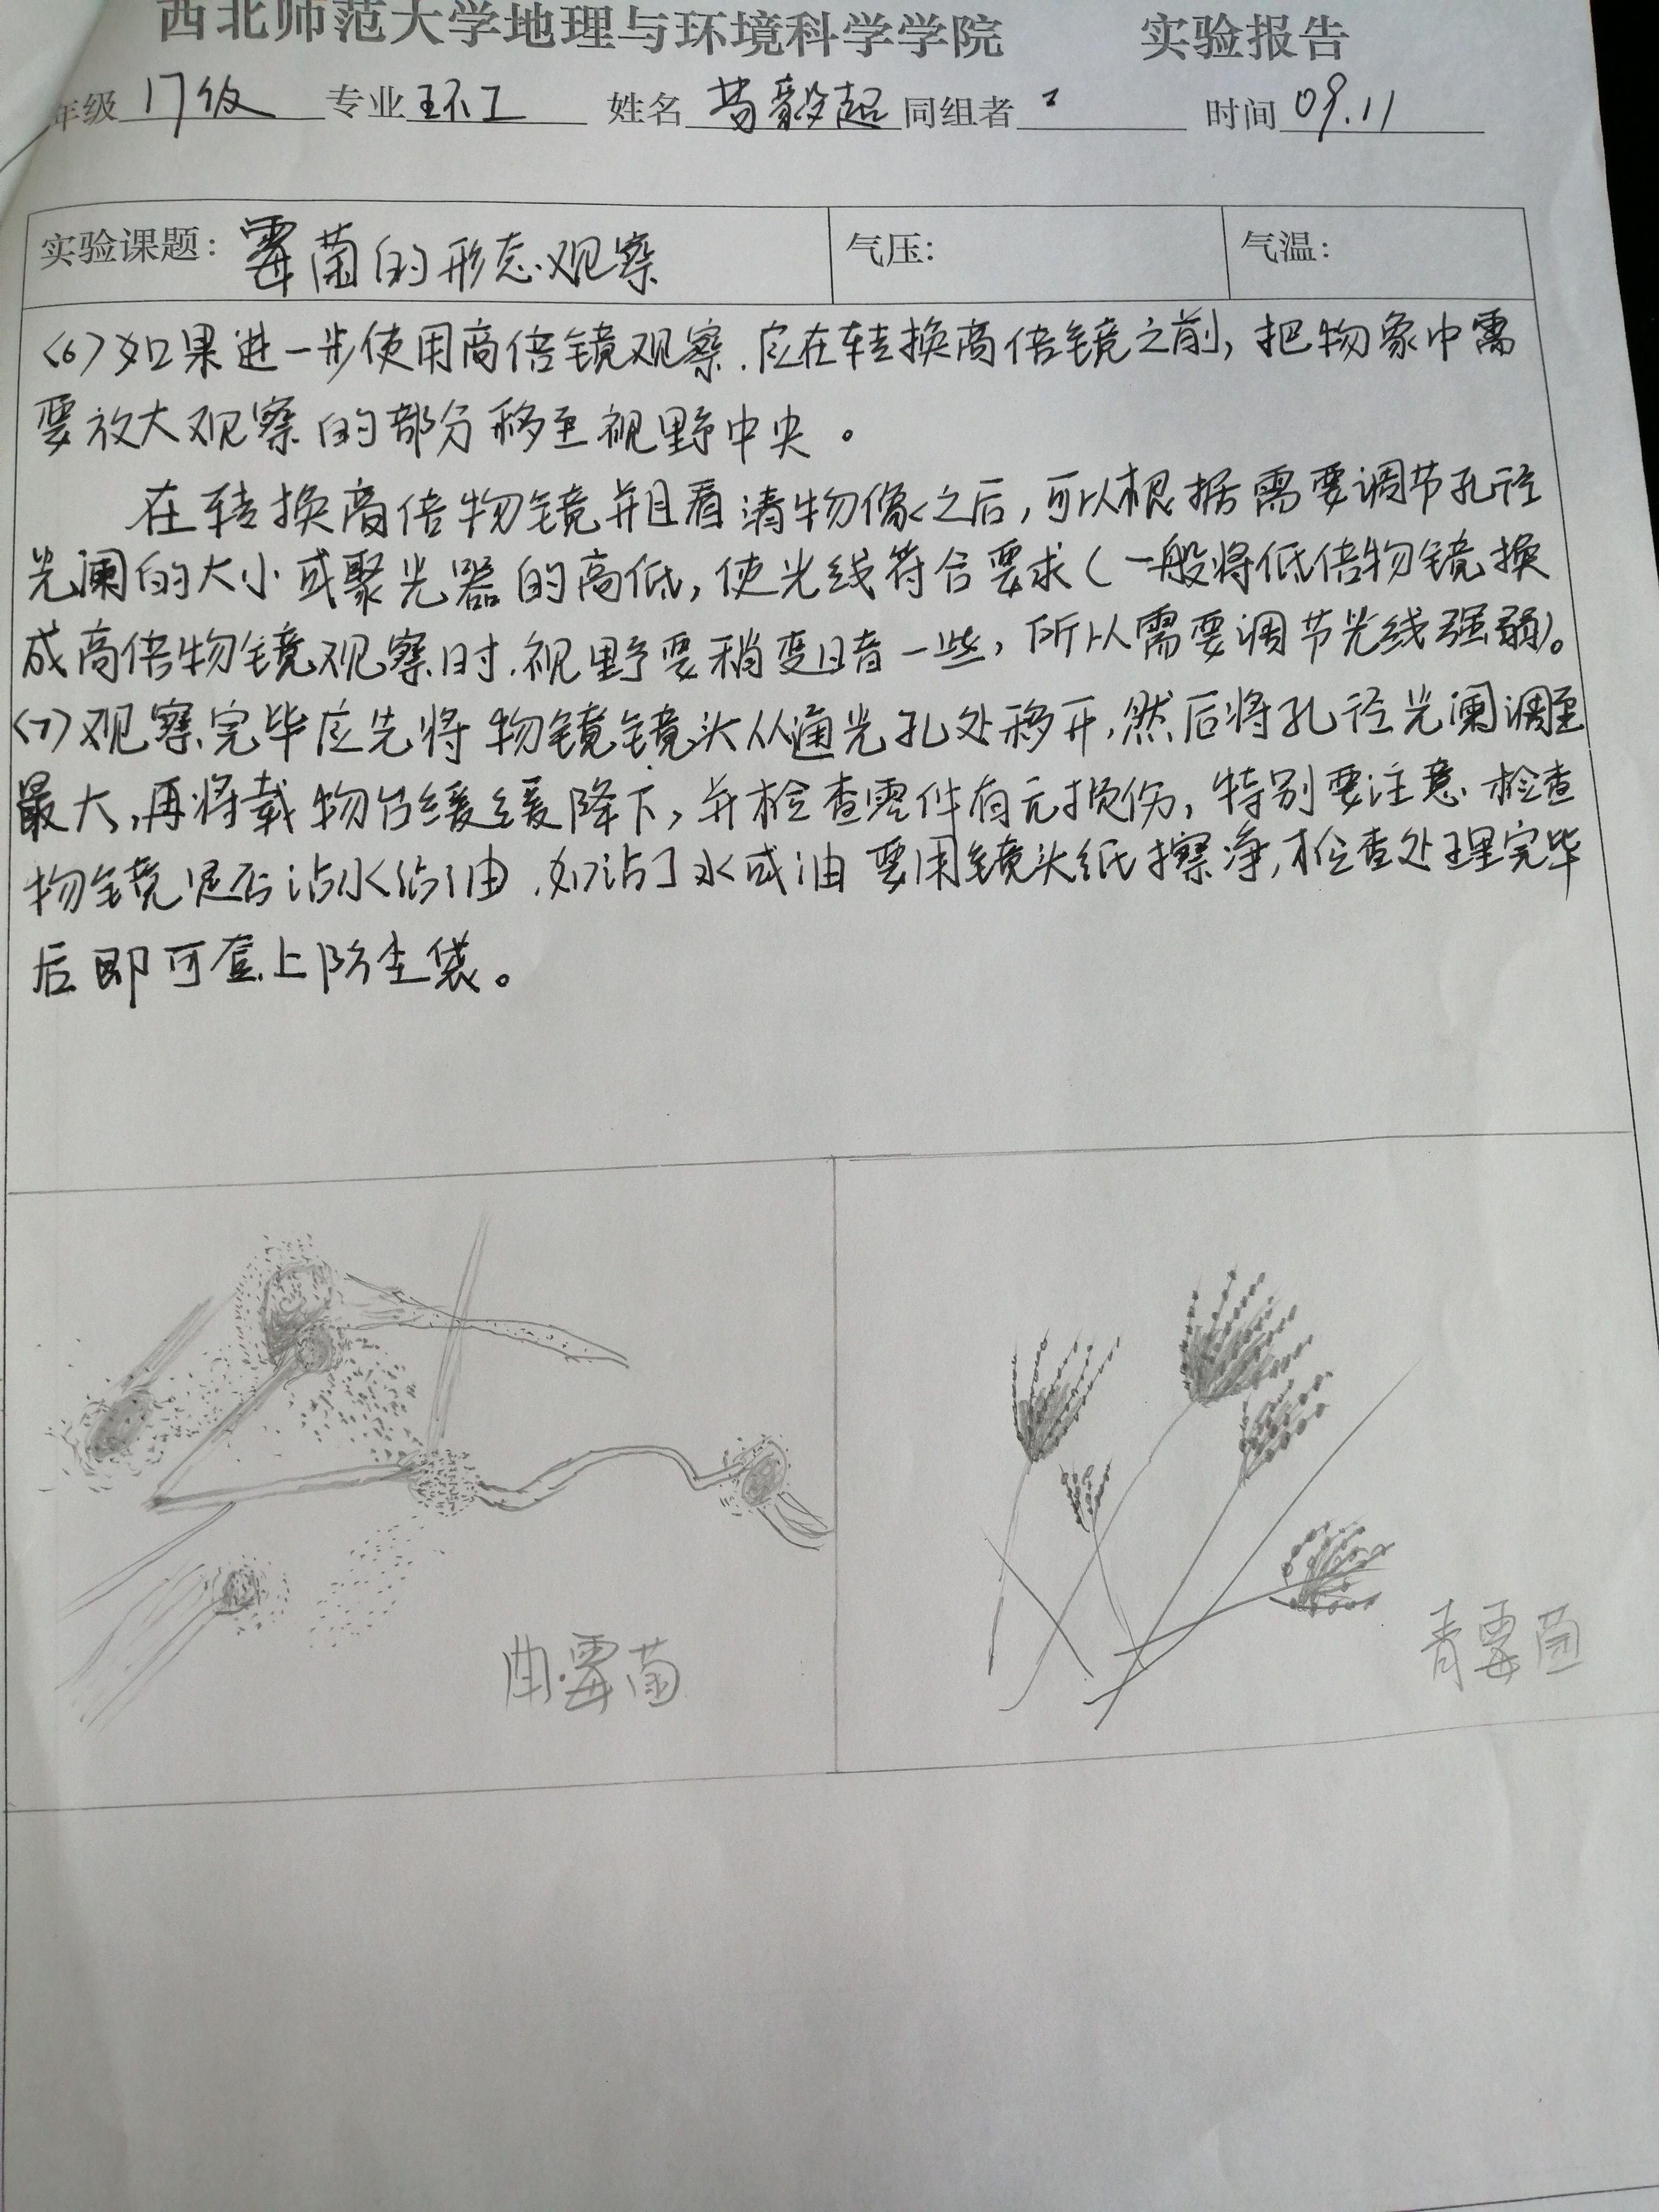 西北师范大学地理与环境科学学院 实验报告
年级 17级 专业 环工 姓名 苟毅超 同组者 时间 09.11
实验课题：霉菌的形态观察 气压： 气温：
(6)如果进一步使用高倍镜观察.应在转换高倍镜之前，把物象中需
要放大观察的部分移至视野中央。
在转换高倍物镜并且看清物像之后，可以根据需要调节孔径
光阑的大小或聚光器的高低，使光线符合要求(一般将低倍物镜换
成高倍物镜观察时.视野要稍变暗一些，所以需要调节光线强弱)。
(7)观察完毕应先将物镜镜头从通光孔处移开,然后将孔径光阑调至
最大,再将载物台缓缓降下,并检查零件有无损伤,特别要注意检查
物镜是否沾水沾油.如沾了水或油要用镜头纸擦净,检查处理完毕
后即可套上防尘袋。
曲霉菌
青霉菌